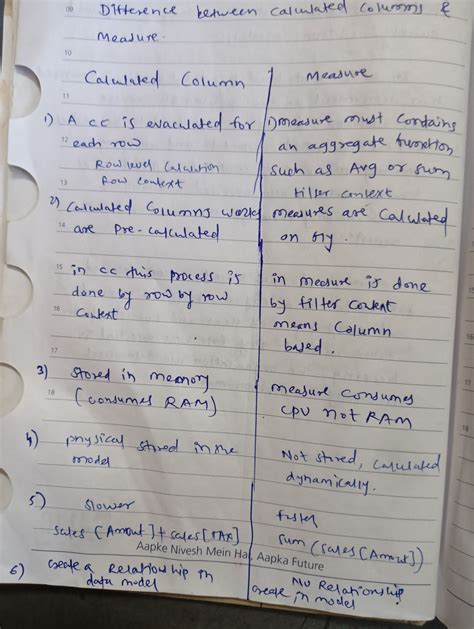 09 Difference between Calculated Columns &
Measure.
10
Calculated Column Measure
11
1) A CC is evaculated for 1) measure must contains
12 each row an aggregate function
Row level Calculation such as Avg or sum
13 Row Context filter context
2) Calculated Columns works measures are Calculated
14 are pre-calculated on fly.
15 in CC this process is in measure is done
done by row by row by filter context
16 context means Column
based.
17
3) Stored in memory measure consumes
18 (consumes RAM) CPU not RAM
4) physical stored in the Not stored, calculated
model dynamically.
5) slower faster
sales [Amout] + sales [TAX] sum (sales [Amout])
Aapke Nivesh Mein Hai, Aapka Future
6) create a Relationship in No Relationship
data model create in model